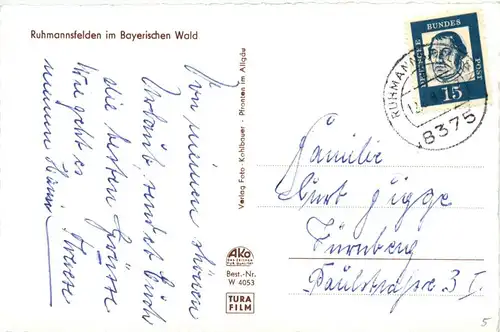 Ruhmannsfelden im Bayerischen Wald
Von meinem schönen
Urlaub, sendet Euch
die besten Grüsse
Wie geht es
meinem
Verlag Foto-Kohlbauer - Pfronten im Allgäu
AKO
Best.-Nr.
W 4053
TURA
FILM
DEUTSCHE BUNDES POST
15
RUHMANNS
8375
Familie
Kurt Gigge
Nürnberg
Paulstraße 3 I.
5